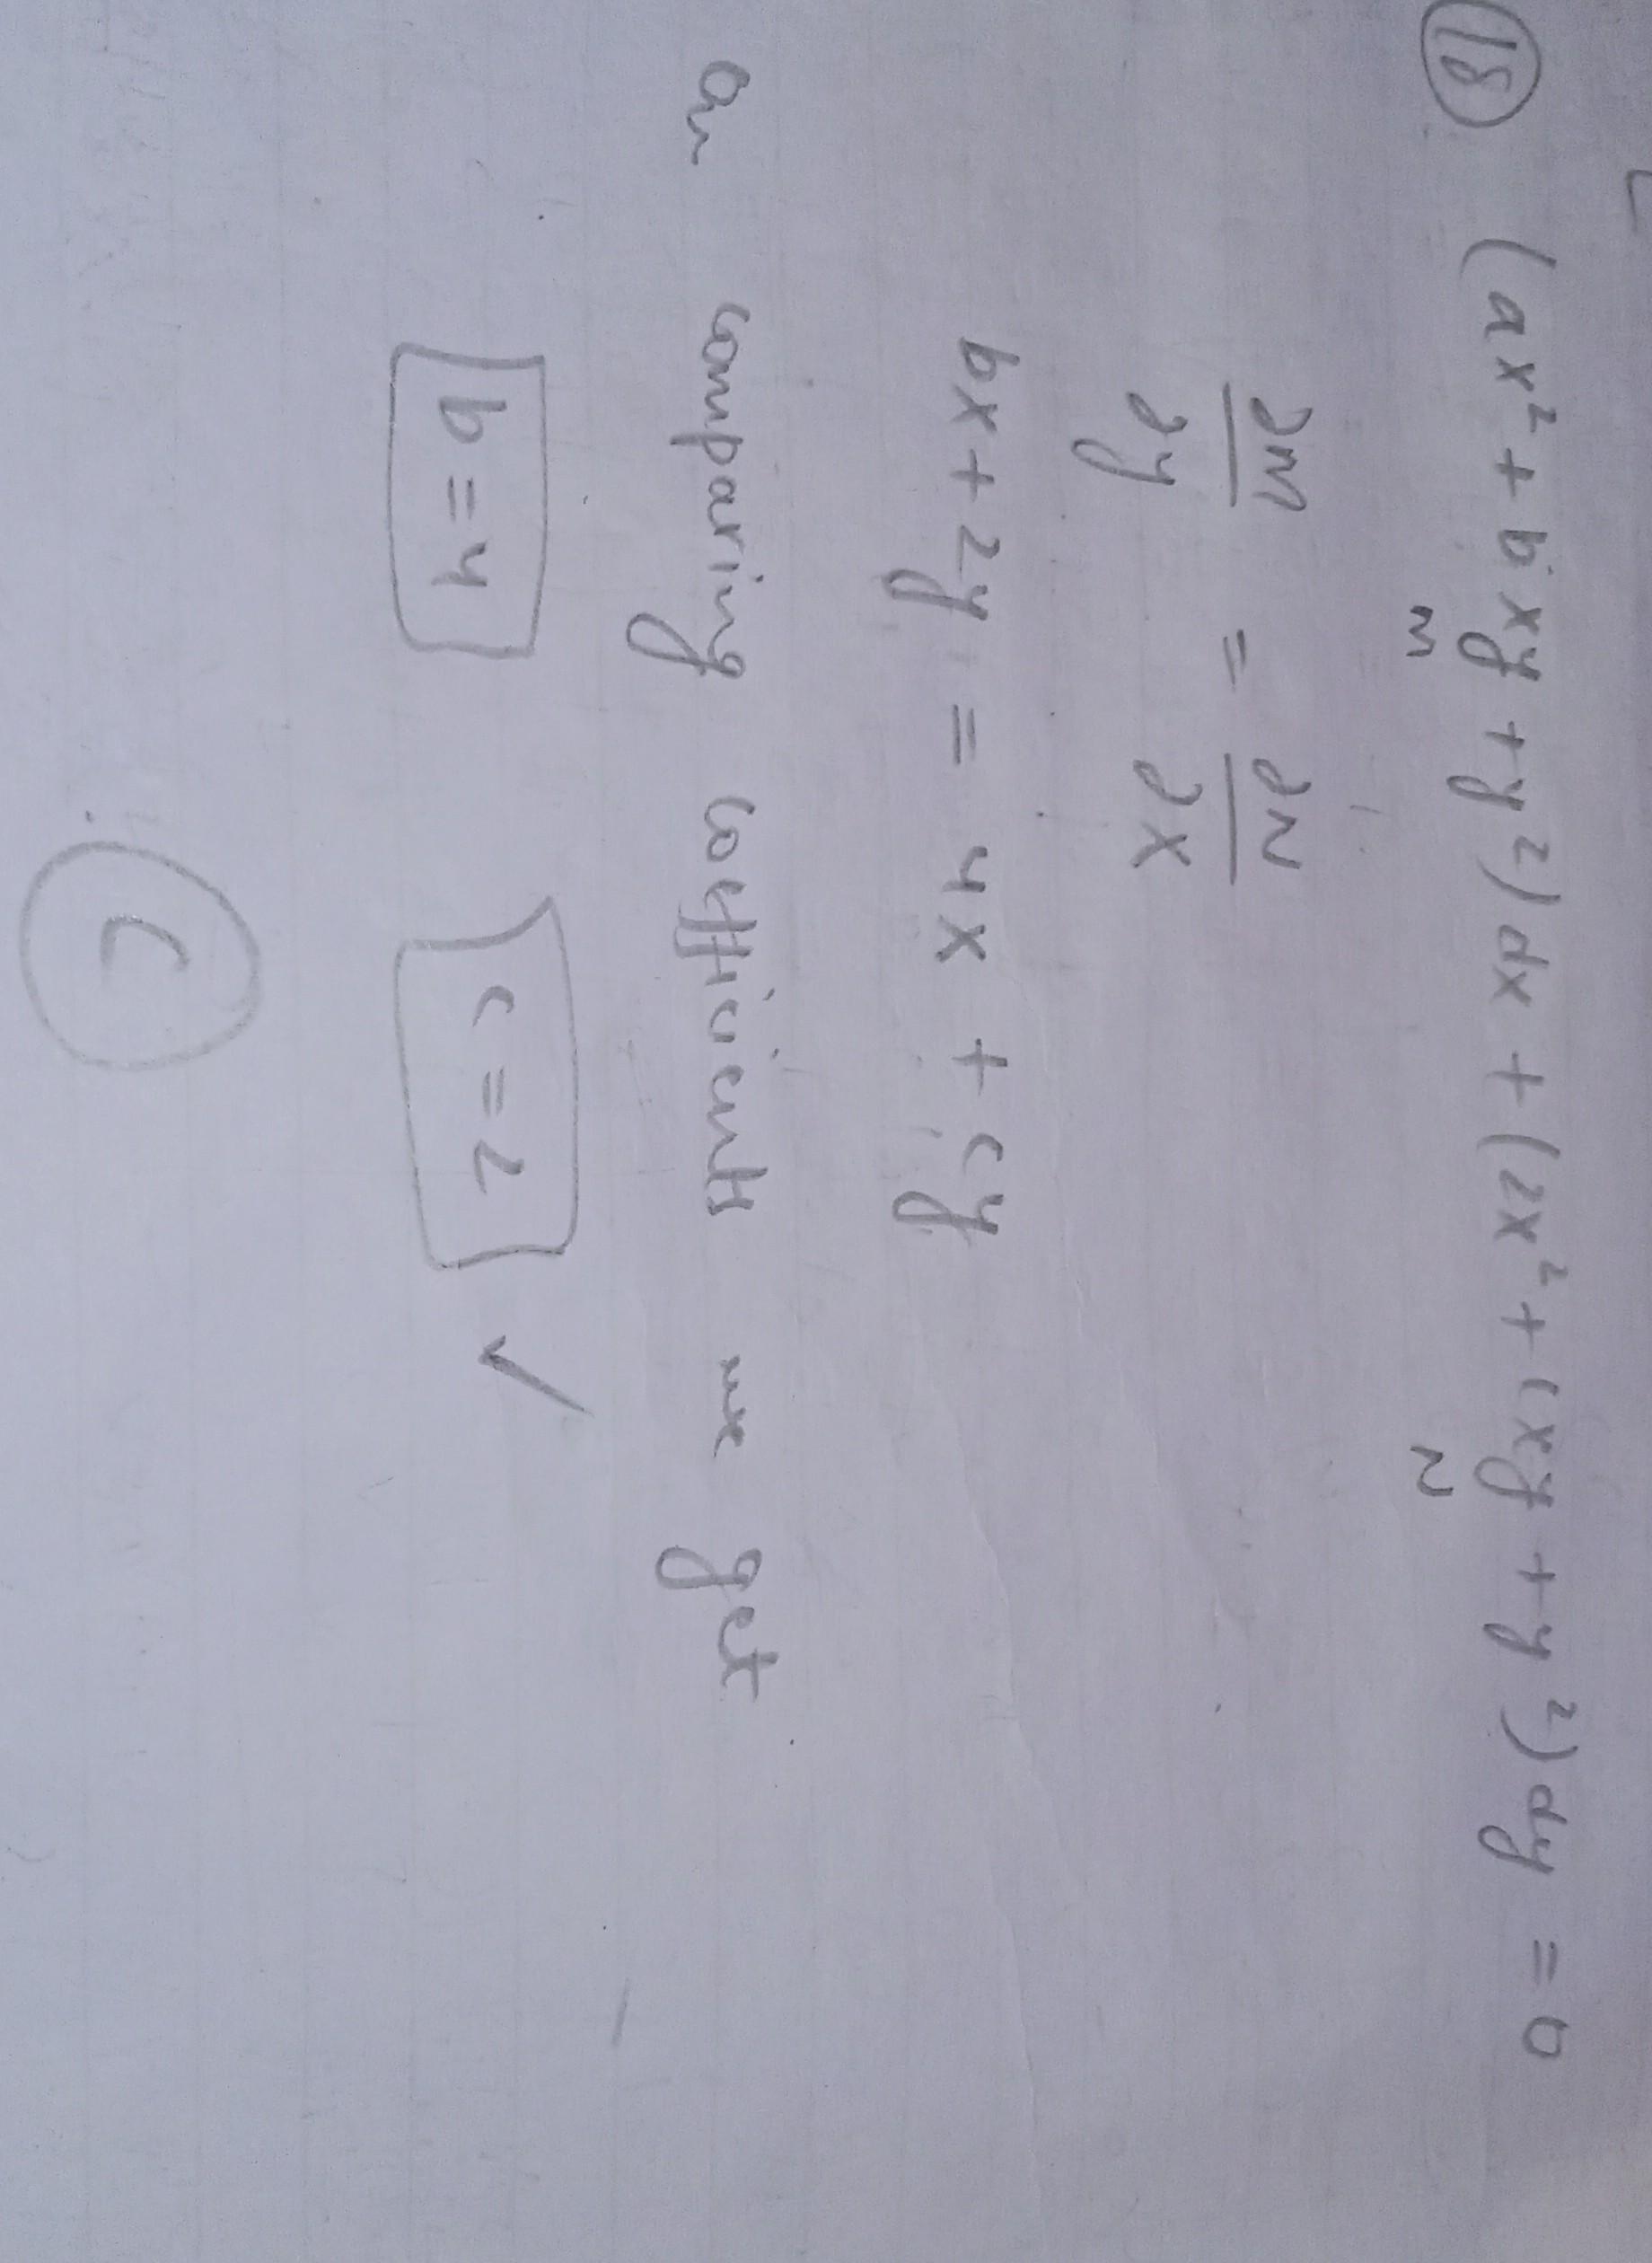 18 (ax² + bxy + y²)dx + (2x² + cxy + y²)dy = 0
M N
∂M/∂y = ∂N/∂x
bx + 2y = 4x + cy
on comparing coefficients we get
b = 4 c = 2 ✓
C